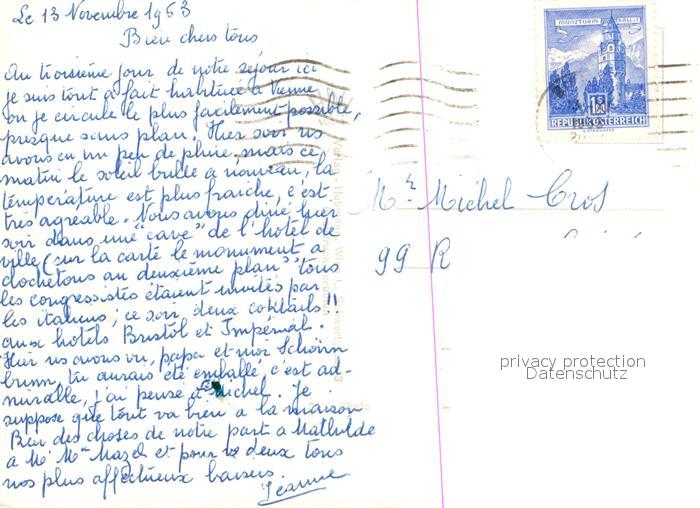 Le 13 Novembre 1963
Bien chers tous
Au troisième jour de notre séjour ici
je suis tout à fait habituée à Vienne
ou je circule le plus facilement possible,
presque sans plan. Hier soir ns
avons eu un peu de pluie, mais ce
matin le soleil brille à nouveau, la
température est plus fraîche, c'est
très agréable. Nous avons diné hier
soir dans une "cave" de l'hôtel de
ville (sur la carte le monument a
clochetons au deuxième plan" tous
les congressistes étaient invités par
les italiens; ce soir, deux coktails!!
aux hotels Bristol et Impérial.
Hier ns avons vu, papa et moi Schönn
brunn, tu aurais été emballé, c'est ad-
mirable, j'ai pensé à Michel. Je
suppose que tout va bien à la maison
Bien des choses de notre part à Mathilde
à Mr Mme Mazel et pour vs deux tous
nos plus affectueux baisers.
Jeanne
MÜNZTURM HALL I.T.
5 5
REPUBLIK ÖSTERREICH
Mr Michel Cros
99 R
privacy protection
Datenschutz